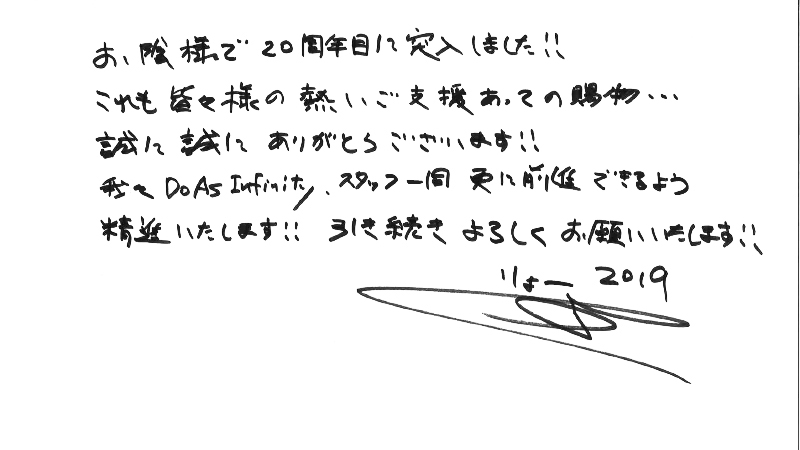 お陰様で20周年目に突入しました!!
これも皆々様の熱いご支援あっての賜物…
誠に誠にありがとうございます!!
我々 Do As Infinity、スタッフ一同 更に前進できるよう
精進いたします!! 引き続きよろしくお願いいたします!!
りょー 2019